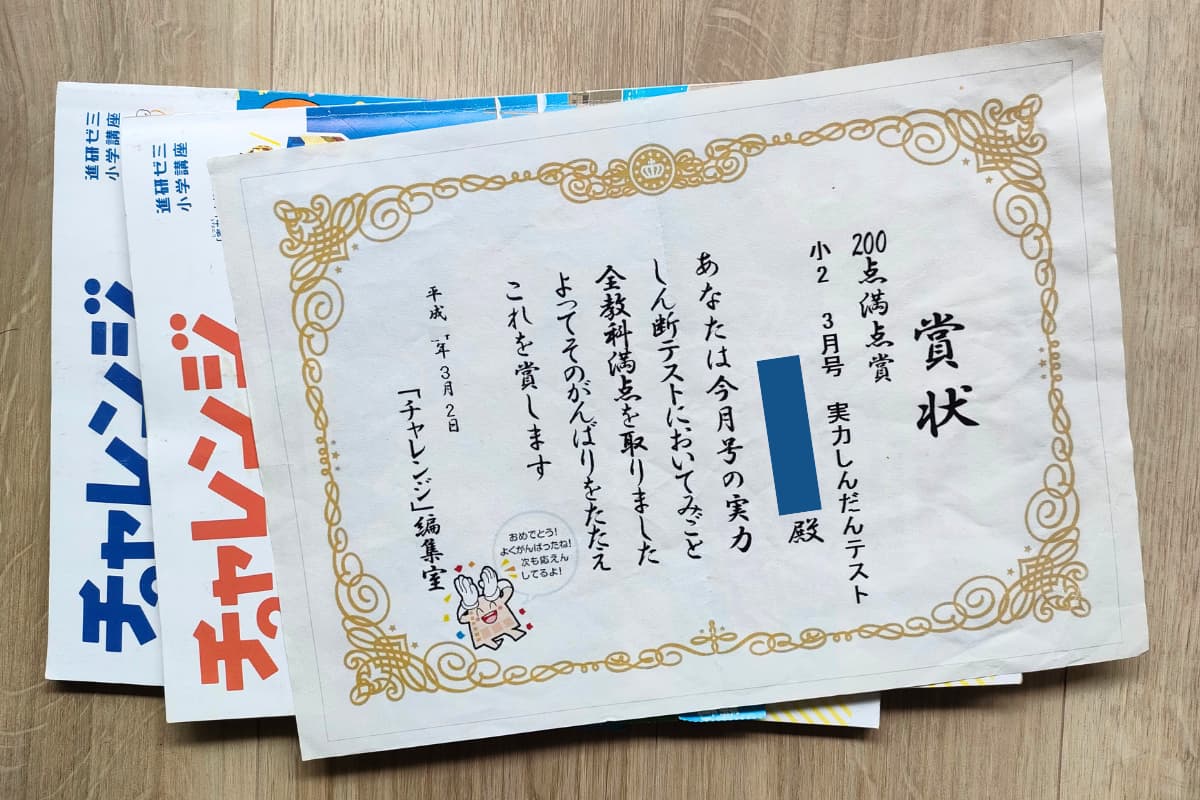 賞状
200点満点賞
小2 3月号 実力しんだんテスト
殿
あなたは今月号の実力
しん断テストにおいてみごと
全教科満点を取りました
よってそのがんばりをたたえ
これを賞します
平成 年3月2日
「チャレンジ」編集室
おめでとう!
よくがんばったね!
次も応えん
してるよ!
進研ゼミ
小学講座
チャレンジ
進研ゼミ
小学講座
チャレンジ